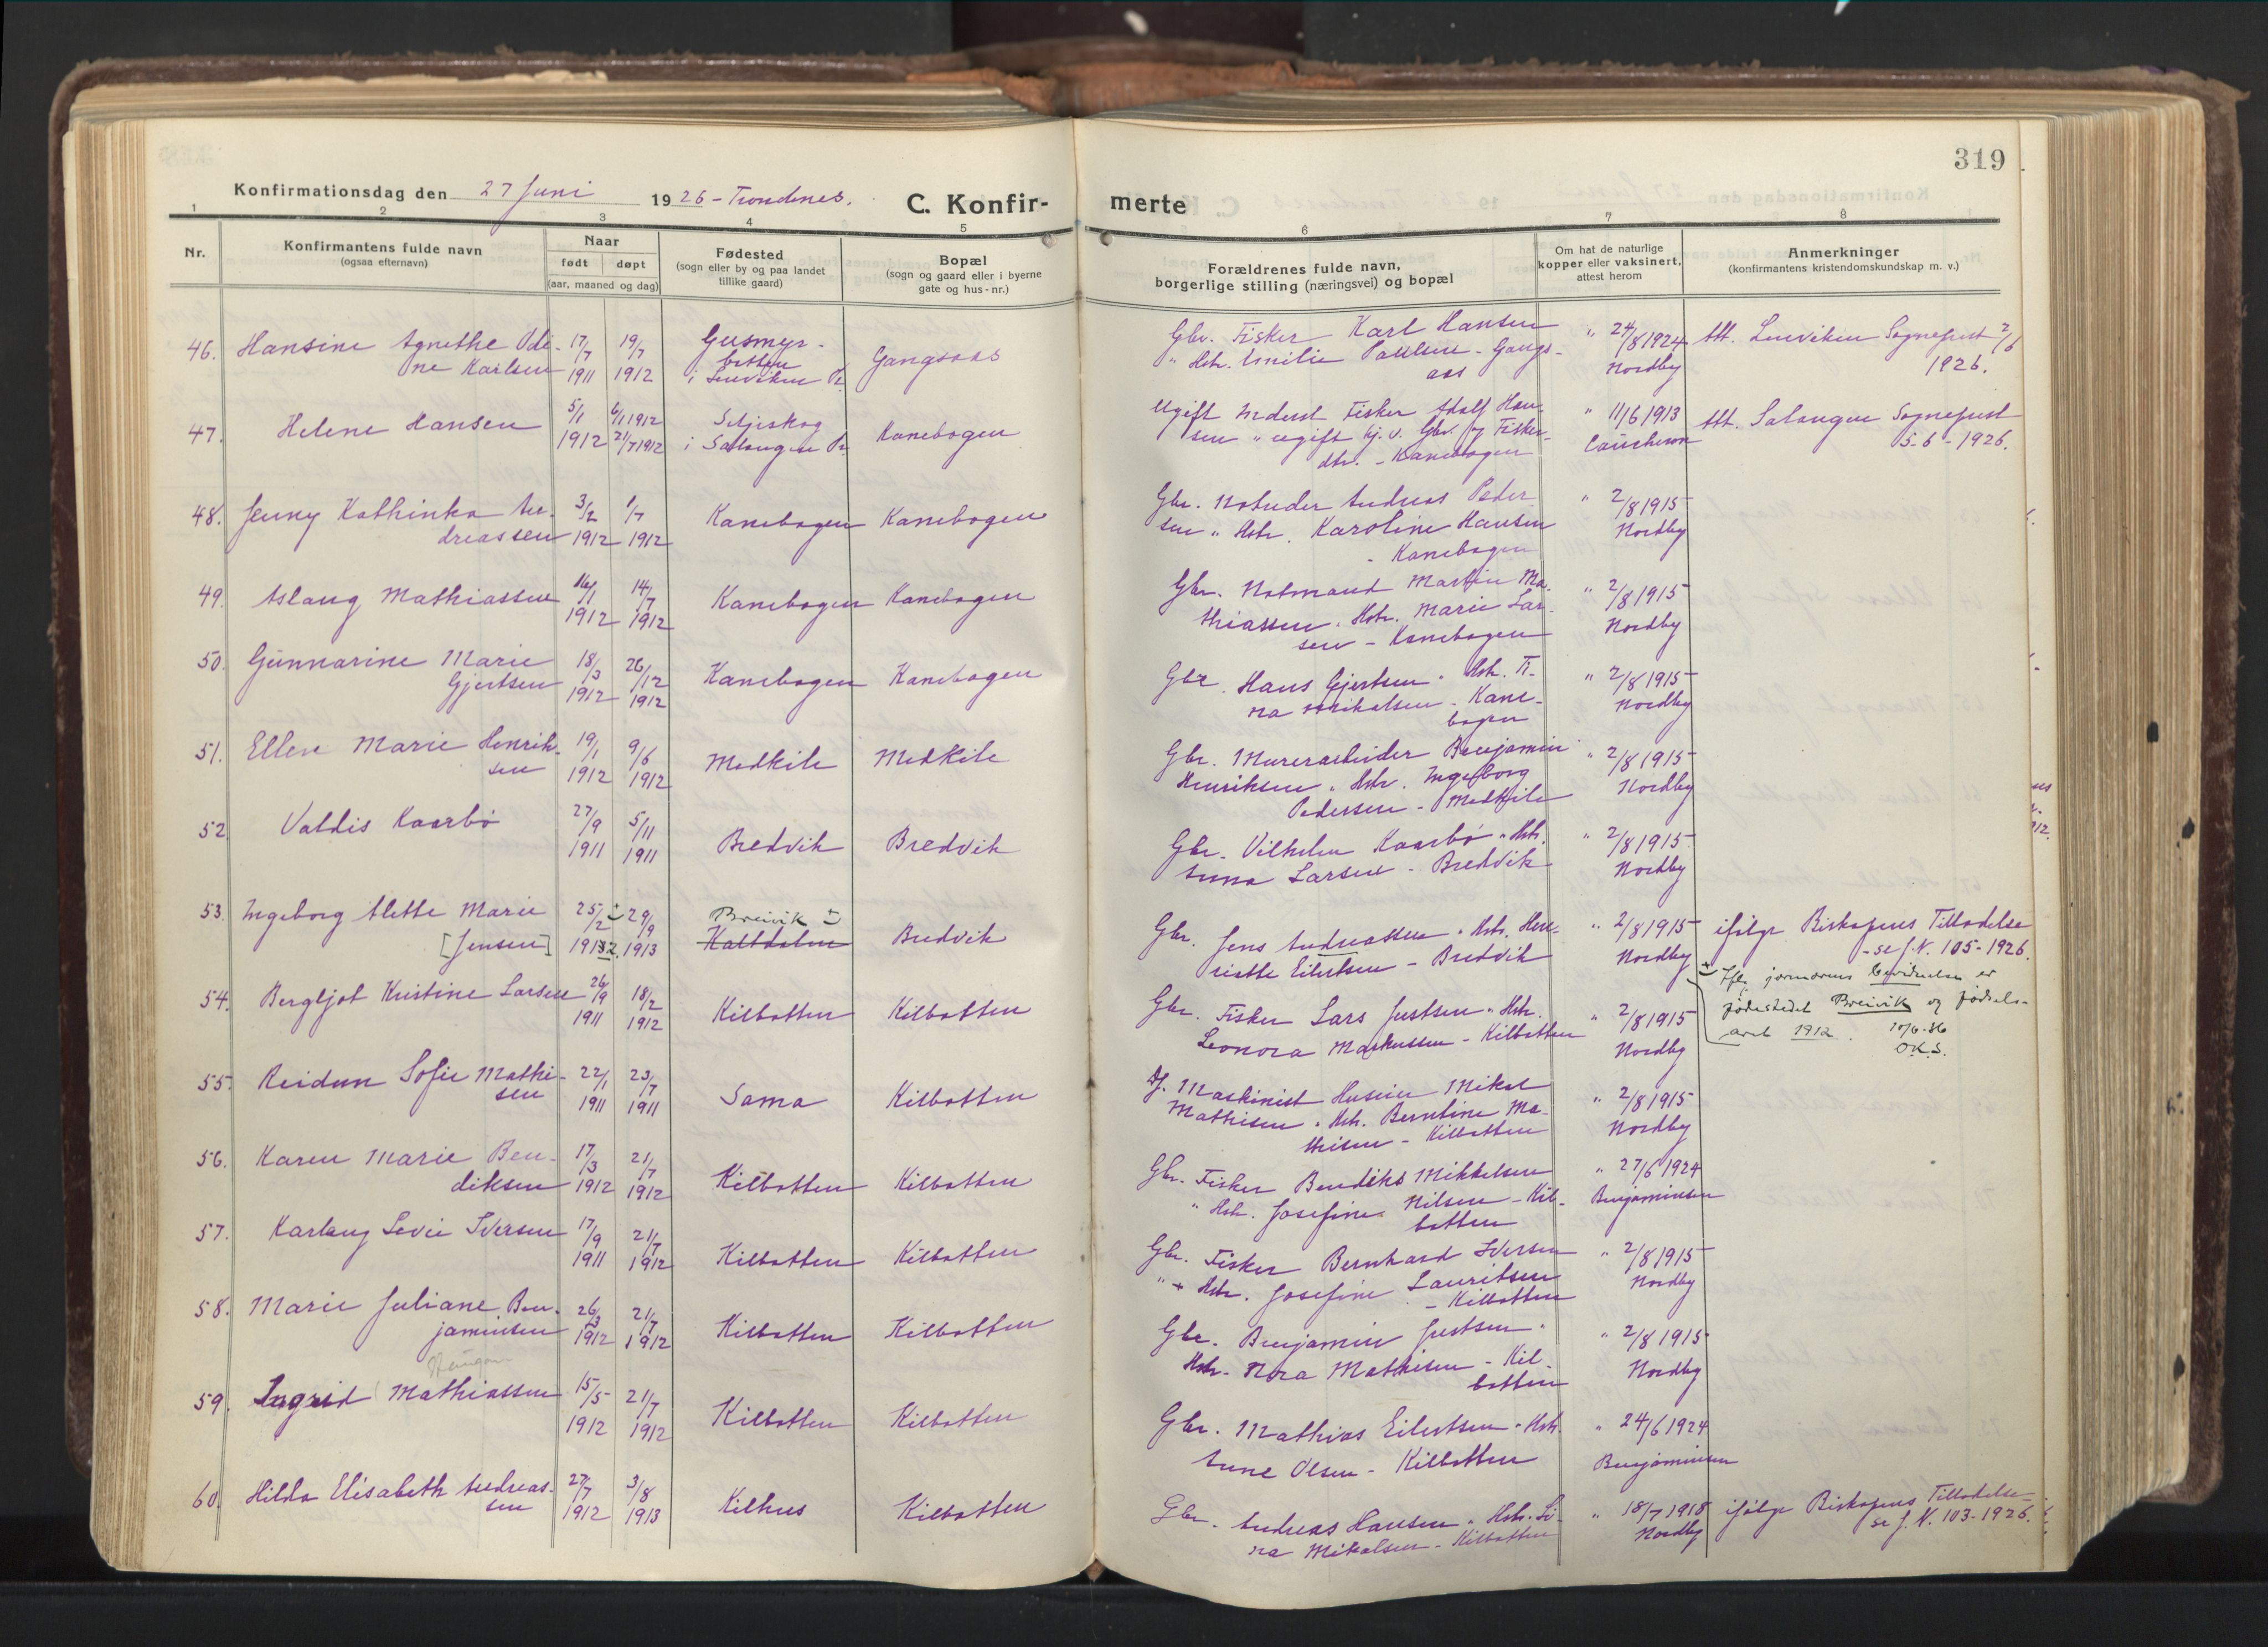 319
Konfirmationsdag den 27 Juni 1926 - Trondenes.
C. Konfir-
merte
1
2
3
4
5
6
7
8
Nr.
Konfirmantens fulde navn
(ogsaa efternavn)
Naar
født
døpt
(aar, maaned og dag)
Fødested
(sogn eller by og paa landet
tillike gaard)
Bopæl
(sogn og gaard eller i byerne
gate og hus-nr.)
Forældrenes fulde navn,
borgerlige stilling (næringsvei) og bopæl
Om hat de naturlige
kopper eller vaksinert,
attest herom
Anmerkninger
(konfirmantens kristendomskundskap m. v.)
46. Hansine Agnethe Odi-
ne Karlsen
17/7 1911
19/7 1912
i Lenviken Pr.
Gangsaas
Gbr. Fisker Karl Hansen
" Hstr. Emilie Paulsen - Gangs-
aas
" 24/8 1924
Nordby
Att. Lenviken Sogneprest 2/6
1926.
47. Helene Hansen
5/1 1912
6/1 1912
21/7 1912
Seljeskog
i Salangen Pr.
Kanebogen
Ugift Inderst Fisker Adolf Han-
sen " ugift Kj. v. Gbr. og Fisker-
dtr. - Kanebogen
" 11/6 1913
Att. Salangen Sogneprest
5-6-1926.
48. Jenny Kathinka An-
dreassen
3/2 1912
1/7 1912
Kanebogen
Kanebogen
Gbr. Notreder Andreas Peder
sen " Hstr. Karoline Hansen
- Kanebogen
" 2/8 1915
Nordby
49. Aslaug Mathiassen
16/1 1912
14/7 1912
Kanebogen
Kanebogen
Gbr. Notmand Martin Ma-
thiassen " Hstr. Marie Lar-
sen - Kanebogen
" 2/8 1915
Nordby
50. Gunnarine Marie
Gjertsen
18/3 1912
26/12 1912
Kanebogen
Kanebogen
Gbr. Hans Gjertsen " Hstr. Ti-
na Mikalsen - Kane-
bogen
" 2/8 1915
Nordby
51. Ellen Marie Henrik-
sen
19/1 1912
9/6 1912
Medkile
Medkile
Gbr. Murerarbeider Benjamin
Henriksen " Hstr. Ingeborg
Pedersen - Medkile
" 2/8 1915
Nordby
52 Valdis Kaarbø
27/9 1911
5/11 1911
Bredvik
Bredvik
Gbr. Vilhelm Kaarbø " Hstr.
Anna Larsen - Bredvik
" 2/8 1915
Nordby
53. Ingeborg Alette Marie
[Jensen]
25/2 1912
29/9 1913
Breivik
Kaltdalen
Bredvik
Gbr. Jens Andreassen " Hstr. Hen-
riette Eilertsen - Bredvik
" 2/8 1915
Nordby
ifølge Biskopens Tilladelse
- se J.N. 105-1926.
Iflg. jormorens bevidnelse er
fødestedet Breivik og fødsels-
aret 1912. 10/6-36
O.K.S.
54. Bergljot Kristine Larsen
26/9 1911
18/2 1912
Kilbotten
Kilbotten
Gbr. Fisker Lars Justsen " Hstr.
Leonora Markussen - Kilbotten
" 2/8 1915
Nordby
55. Reidun Sofie Mathi-
sen
22/1 1911
23/7 1911
Sama
Kilbotten
Maskinist Huseier Mikal
Mathisen " Hstr. Berntine Ma-
thisen - Kilbotten
" 2/8 1915
Nordby
56. Karen Marie Ben-
diksen
17/3 1912
21/7 1912
Kilbotten
Kilbotten
Gbr. Fisker Bendiks Mikkelsen
" Hstr. Josefine Nilsen - Kil-
botten
" 27/6 1924
Benjaminsen
57. Karlaug Levie Iversen
17/9 1911
21/7 1912
Kilbotten
Kilbotten
Gbr. Fisker Bernhard Iversen
" + Hstr. Josefine Lauritsen
- Kilbotten
" 2/8 1915
Nordby
58. Marie Juliane Ben-
jaminsen
26/3 1912
21/7 1912
Kilbotten
Kilbotten
Gbr. Benjamin Justsen "
Hstr. Nora Mathisen - Kil-
botten
" 2/8 1915
Nordby
59. Ingrid Mathiassen
15/5 1912
21/7 1912
Kilbotten
Kilbotten
Gbr. Mathias Eilertsen " Hstr.
Anne Olsen - Kilbotten
" 24/6 1924
Benjaminsen
60. Hilda Elisabeth Andreas-
sen
27/7 1912
3/8 1913
Kilhus
Kilbotten
Gbr. Andreas Hansen " Hstr. Li-
na Mikalsen - Kilbotten
" 18/7 1918
Nordby
ifølge Biskopens Tilladelse-
se J.N. 103-1926.